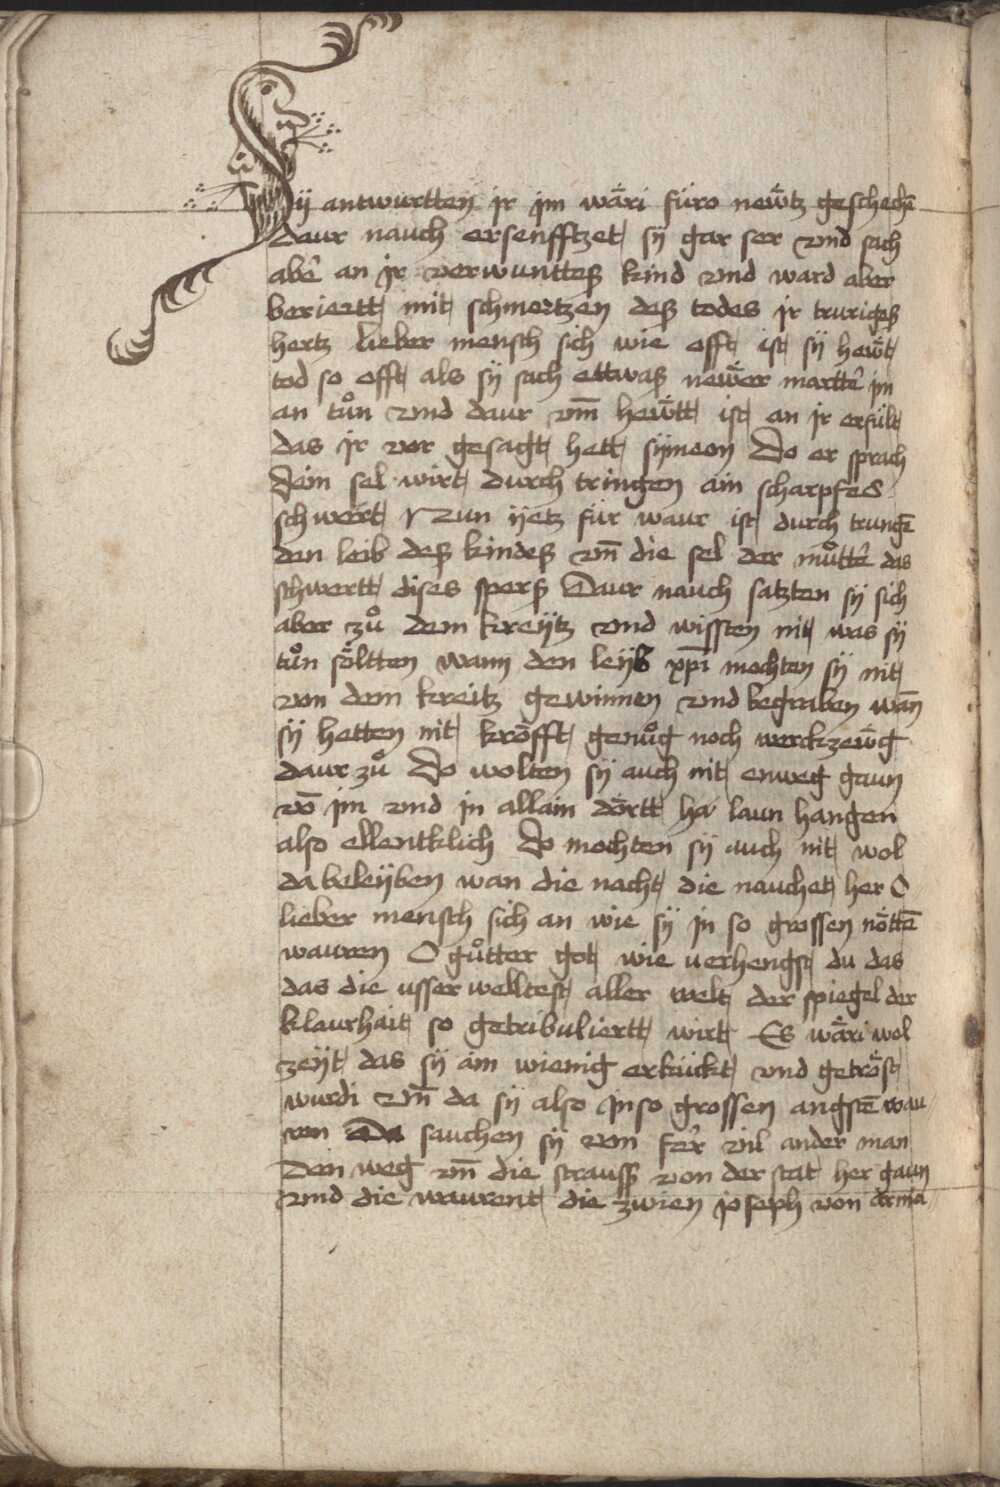 Sy antwurtten jr jm wäri füro newtz geschechē
daur nauch ersenfftzet sÿ gar ser vnd sach
aber an jr verwuntteß kind vnd ward aber
beriertt mit schmertzen deß todes jr truriges
hertz lieber mensch sich wie offt ist sÿ hewt
tod so offt als sÿ sach ettwaß newer martter jm
an tůn vnd daur vm̄ hewtt ist an jr erfült
das jr vor gesagt hett sÿmeon Do er sprach
dein sel wirt durch tringen ain scharpfes
schwert Nun ÿetz für waur ist durch trungē
den leib deß kindeß vn̄ die sel der můtter das
schwertt dises sperß Daur nauch satzten sÿ sich
aber zů dem kreÿtz vnd wissten nit was sÿ
tůn söltten wann den leÿb xp̄i mochten sÿ nit
von dem kreitz gewinnen vnd begraben wan̄
sÿ hetten nit kröfft genůg noch werckzewg
daur zů Do wolten sÿ auch nit enweg gaun
vō jm vnd in allain dörtt ha laun hangen
also ellentklich Do mochten sÿ auch nit wol
da beleÿben wan die nacht die nauchet her O
lieber mensch sich an wie sÿ jn so grossen nöttē
wauren O gůtter got wie verhengst du das
das die usser welltest aller welt der spiegel der
klaurhait so getribuliertt wirt Es wäri wol
zeÿt das sÿ ain wienig erkückt vnd getröst
wurdi vn̄ da sÿ also jn so grossen angstē wau
ren Da sauchen sÿ von fer vil ander man
Den weg vn̄ die strauss von der stat her gaun
vnd die waurent die zwien joseph von arma